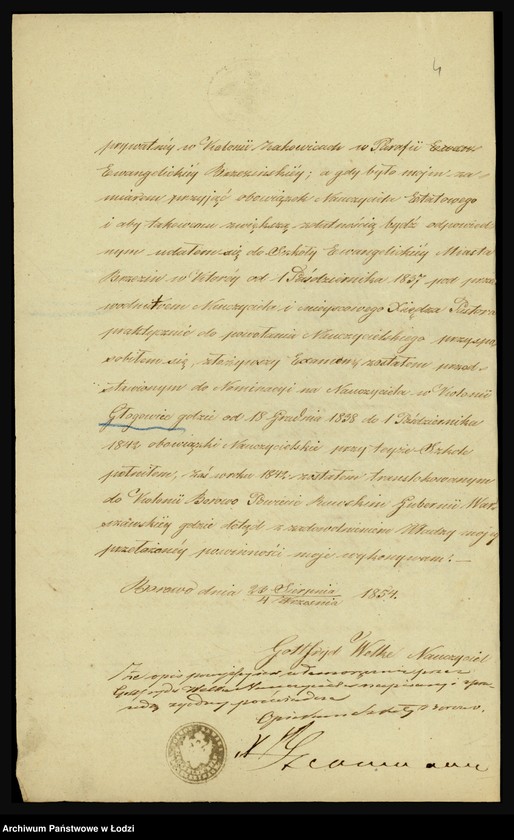 4
prywatnéy w Kolonii Zakowicach w Parafii
Ewangelickiéy Brzezinskiéy; a gdy było mojem za-
miarem przyjąć obowiązek Nauczyciela Etatowego
i aby takowemu zwiększą zdatnością bydź odpowied-
nym udałem się do Szkoły Ewangelickiéy Miasta
Brzezin w którey od 1 Października 1837 pod prze-
wodnitwem Nauczyciela i miejscowego Xiędza Pastora
praktycznie do powołania Nauczycielskiego przyspo-
sobiłem się, złożywszy Examena zostałem przed-
stawionym do Nominacyi na Nauczyciela w Kolonii
Głogowiec gdzie od 18 Grudnia 1838 do 1 Października
1842 obowiązki Nauczycielskie przy teyże Szkole
pełniłem, zaś w roku 1842 zostałem translokowanym
do Kolonii Borowo Powiecie Rawskim Gubernii War-
szawskiéy gdzie dotąd z zadowolnieniem Władzy mojéy
przełożonéy powinności moje wykonywam. —
Borowo dnia 23 Sierpnia / 4 Września 1854.
Gottfryd Wolke Nauczyciel
Że opis przez
Gottfryda Wolke Nauczyciela napisany z
zgodny poświadcza
Opiekun Szkoły Borowo.
Archiwum Państwowe w Łodzi